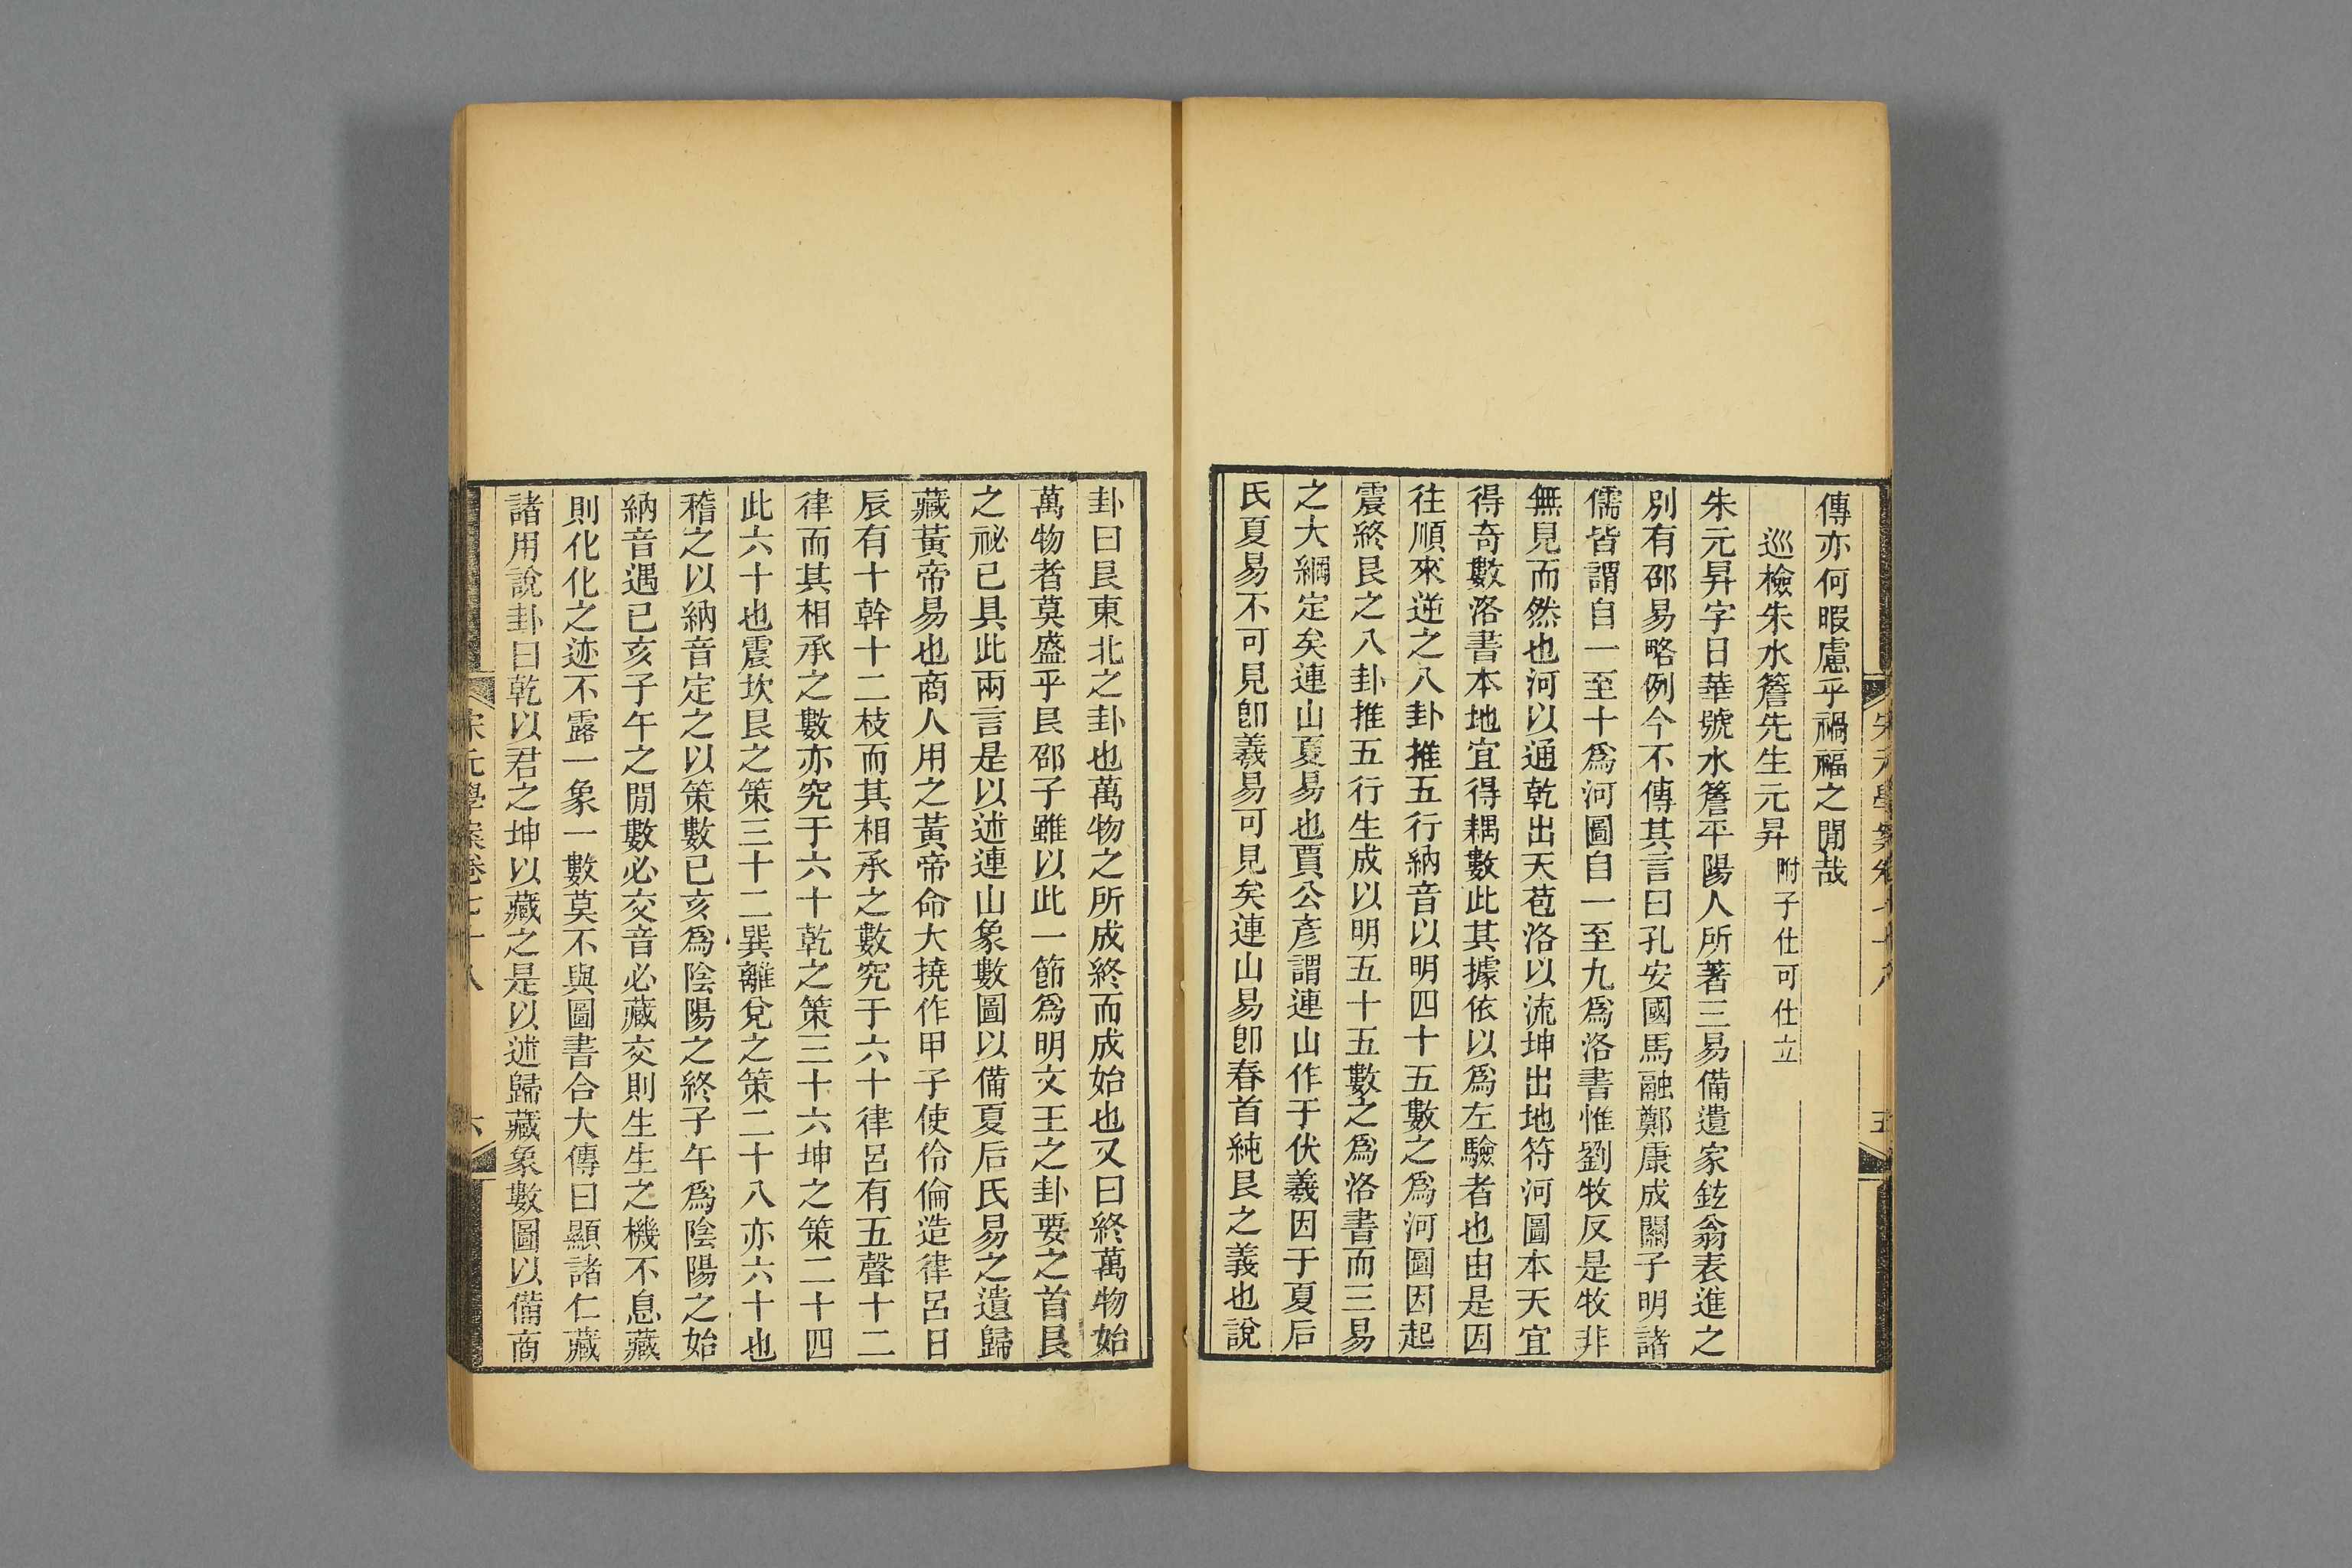 傳亦何暇慮乎禍福之閒哉
巡檢朱水簷先生元昇附子仕可仕立
朱元昇字日華號水簷平陽人所著三易備遺家鉉翁表進之
別有邵易略例今不傳其言曰孔安國馬融鄭康成關子明諸
儒皆謂自一至十爲河圖自一至九爲洛書惟劉牧反是牧非
無見而然也河以通乾出天苞洛以流坤出地符河圖本天宜
得奇數洛書本地宜得耦數此其據依以爲左驗者也由是因
往順來逆之八卦推五行納音以明四十五數之爲河圖因起
震終艮之八卦推五行生成以明五十五數之爲洛書而三易
之大綱定矣連山夏易也賈公彥謂連山作于伏羲因于夏后
氏夏易不可見卽羲易可見矣連山易卽春首純艮之義也說
卦曰艮東北之卦也萬物之所成終而成始也又曰終萬物始
萬物者莫盛乎艮邵子雖以此一節爲明文王之卦要之首艮
之祕已具此兩言是以述連山象數圖以備夏后氏易之遺歸
藏黃帝易也商人用之黃帝命大撓作甲子使伶倫造律呂日
辰有十幹十二枝而其相承之數究于六十律呂有五聲十二
律而其相承之數亦究于六十乾之策三十六坤之策二十四
此六十也震坎艮之策三十二巽離兌之策二十八亦六十也
稽之以納音定之以策數已亥爲陰陽之終子午爲陰陽之始
納音遇已亥子午之閒數必交音必藏交則生生之機不息藏
則化化之迹不露一象一數莫不與圖書合大傳曰顯諸仁藏
諸用說卦曰乾以君之坤以藏之是以述歸藏象數圖以備商
宋元學案卷七十八
六